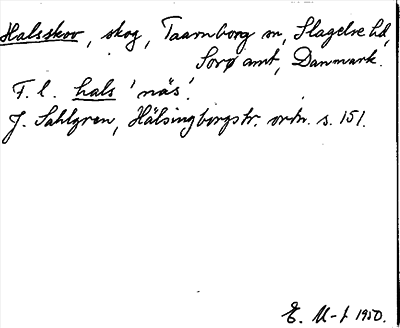 Halsskov, skog, Taarnborg sn, Slagelse hd,
Sorø amt, Danmark.
F. l. hals 'näs'.
J. Sahlgren, Hälsingborgstr. ortn. s. 151.
E. M-t 1950.